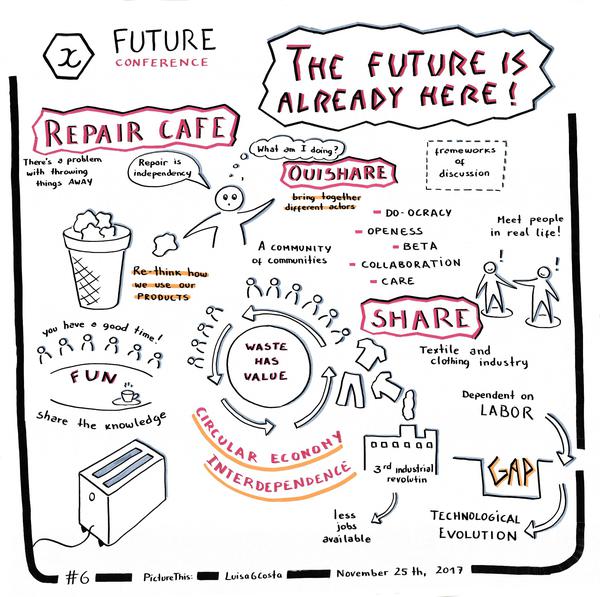 x
FUTURE
CONFERENCE
THE FUTURE IS
ALREADY HERE!
REPAIR CAFE
There's a problem
with throwing
things AWAY
Repair is
independency
What am I doing?
OUISHARE
bring together
different actors
frameworks
of
discussion
DO-OCRACY
OPENESS
BETA
COLLABORATION
CARE
Meet people
in real life!
! !
A COMMUNITY
of communities
Re-think how
we use our
PRODUCTS
you have a good time!
FUN
Share the knowledge
WASTE
HAS
VALUE
CIRCULAR ECONOMY
INTERDEPENDENCE
SHARE
Textile and
clothing industry
Dependent on
LABOR
GAP
TECHNOLOGICAL
EVOLUTION
3rd industrial
revolutin
less
jobs
available
#6 PictureThis: LuisaGCosta November 25th, 2017